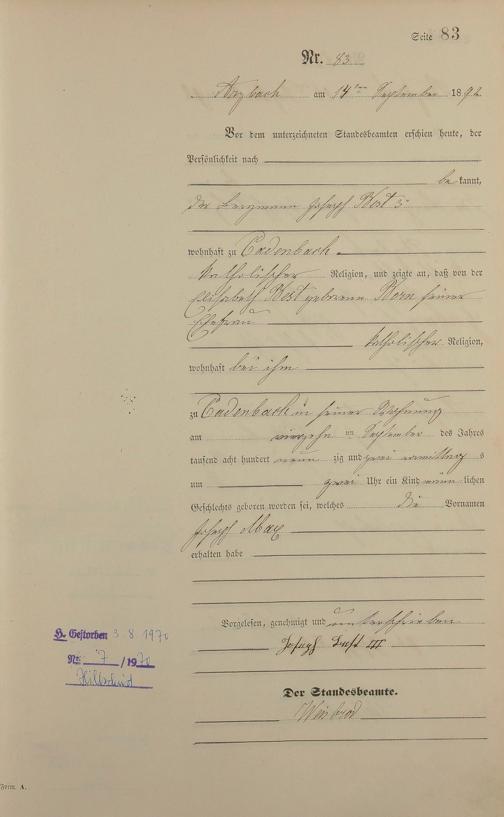 Seite 83
Nr. 83
Arzbach am 14ten September 1892
Vor dem unterzeichneten Standesbeamten erschien heute, der
Persönlichkeit nach
be kannt,
der Bergmann Joseph
wohnhaft zu Cadenbach
katholischer Religion, und zeigte an, daß von der
Elisabeth geborene Born seiner
Ehefrau
katholischer Religion,
wohnhaft bei ihm
zu Cadenbach in seiner Wohnung
am vierzehn ten September des Jahres
tausend acht hundert neun zig und zwei vormittag s
um zwei Uhr ein Kind männ lichen
Geschlechts geboren worden sei, welches die Vornamen
Joseph Max
erhalten habe
Vorgelesen, genehmigt und unterschrieben
Joseph III
Der Standesbeamte.
Gestorben 3.8.1970
Nr. 7 / 1970
Form. A.